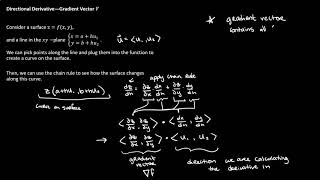 Directional Derivative—Gradient Vector
Consider a surface z = f(x, y),
and a line in the xy −plane { x = a + hu₁
y = b + hu₂.
u⃗ = <u₁, u₂>
* gradient vector
contains all
We can pick points along the line and plug them into the function to
create a curve on the surface.
Then, we can use the chain rule to see how the surface changes
along this curve.
z(a+hu₁, b+hu₂)
curve on surface
apply chain rule
dz/dh = ∂z/∂x dx/dh + ∂z/∂y dy/dh
<∂z/∂x, ∂z/∂y> · <dx/dh, dy/dh>
→ <∂z/∂x, ∂z/∂y> · <u₁, u₂>
gradient
vector
∇f
direction we are calculating
the derivative in